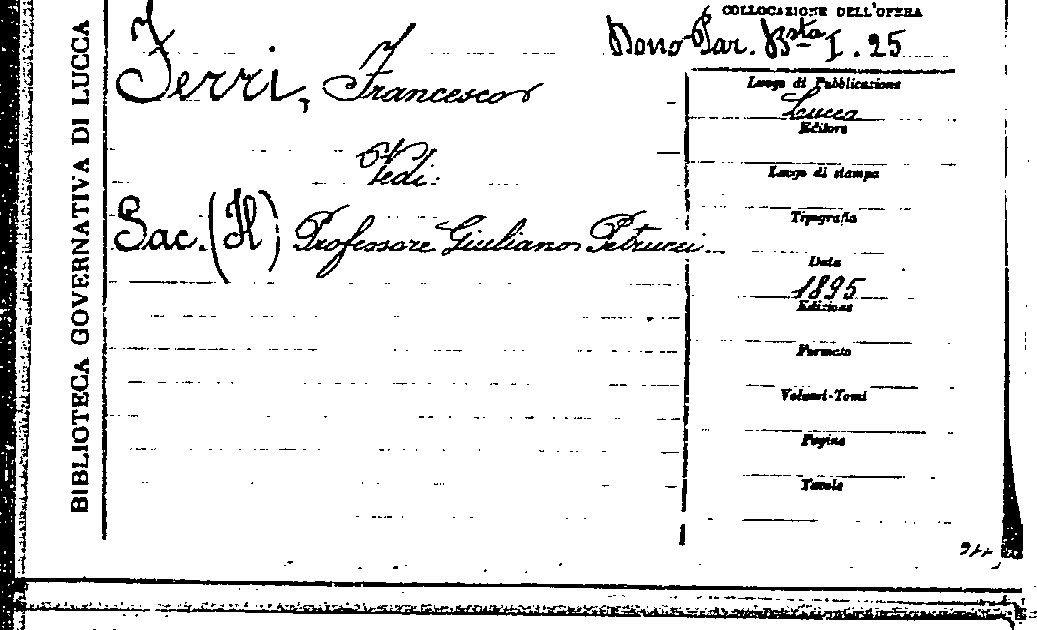 BIBLIOTECA GOVERNATIVA DI LUCCA
COLLOCAZIONE DELL'OPERA
Dono Par. Bsta I. 25
Ferri, Francesco
Vedi:
Sac. (Il) Professore Giuliano Petrucci
Luogo di Pubblicazione
Lucca
Editore
Luogo di stampa
Tipografia
Data
1895
Edizione
Formato
Volumi-Tomi
Pagine
Tavole